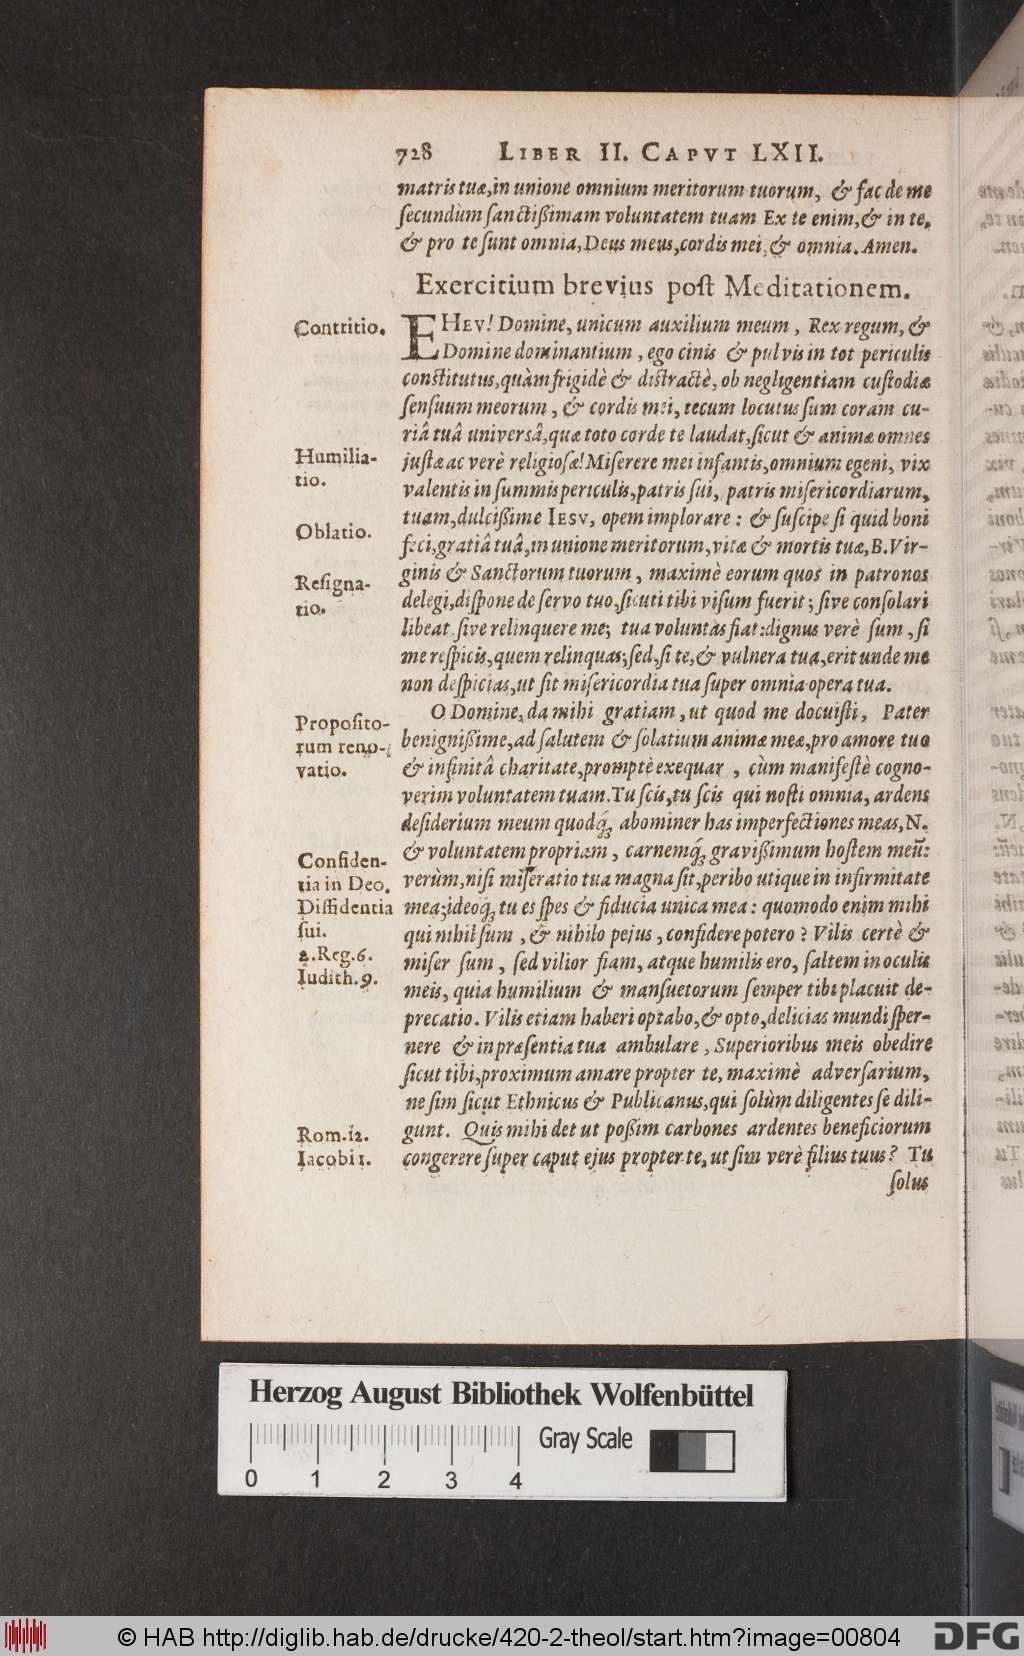 728 LIBER II. CAPVT LXII.
matris tuæ, in unione omnium meritorum tuorum, & fac de me
ſecundùm ſanctißimam voluntatem tuam Ex te enim, & in te,
& pro te ſunt omnia, Deus meus, cordis mei, & omnia. Amen.
Exercitium brevius poſt Meditationem.
Contritio.
EHEV! Domine, unicum auxilium meum, Rex regum, &
Domine dominantium, ego cinis & pulvis in tot periculis
conſtitutus, quàm frigidè & diſtractè, ob negligentiam cuſtodiæ
ſenſuum meorum, & cordis mei, tecum locutus ſum coram cu-
riâ tuâ universâ, quæ toto corde te laudat, ſicut & animæ omnes
Humilia-
tio.
juſtæ ac verè religioſæ! Miſerere mei infantis, omnium egeni, vix
valentis in ſummis periculis, patris ſui, patris miſericordiarum,
Oblatio.
tuam, dulcißime IESV, opem implorare: & ſuſcipe ſi quid boni
feci, gratiâ tuâ, in unione meritorum, vitæ & mortis tuæ, B. Vir-
Reſigna-
tio.
ginis & Sanctorum tuorum, maximè eorum quos in patronos
delegi, diſpone de ſervo tuo, ſicuti tibi viſum fuerit; ſive conſolari
libeat ſive relinquere me; tua voluntas fiat: dignus verè ſum, ſi
me reſpicis, quem relinquas; ſed, ſi te, & vulnera tua, erit unde me
non deſpicias, ut ſit miſericordia tua ſuper omnia opera tua.
Propoſito-
rum reno-
vatio.
O Domine, da mihi gratiam, ut quod me docuiſti, Pater
benignißime, ad ſalutem & ſolatium animæ meæ, pro amore tuo
& infinitâ charitate, promptè exequar, cùm manifeſtè cogno-
verim voluntatem tuam. Tu ſcis, tu ſcis qui noſti omnia, ardens
deſiderium meum quodq́; abominer has imperfectiones meas, N.
Confiden-
tia in Deo.
Diffidentia
ſui.
2. Reg. 6.
Iudith. 9.
& voluntatem propriam, carnemq́; gravißimum hoſtem meũ:
verùm, niſi miſeratio tua magna ſit, peribo utique in infirmitate
mea; ideoq́; tu es ſpes & fiducia unica mea: quomodo enim mihi
qui nihil ſum, & nihilo pejus, confidere potero? Vilis certè &
miſer ſum, ſed vilior fiam, atque humilis ero, ſaltem in oculis
meis, quia humilium & manſuetorum ſemper tibi placuit de-
precatio. Vilis etiam haberi optabo, & opto, delicias mundi ſper-
nere & in præſentia tua ambulare, Superioribus meis obedire
ſicut tibi, proximum amare propter te, maximè adverſarium,
ne ſim ſicut Ethnicus & Publicanus, qui ſolùm diligentes ſe dili-
Rom. 12.
Iacobi 1.
gunt. Quis mihi det ut poßim carbones ardentes beneficiorum
congerere ſuper caput ejus propter te, ut ſim verè filius tuus? Tu
ſolus
Herzog August Bibliothek Wolfenbüttel
Gray Scale
0 1 2 3 4
© HAB http://diglib.hab.de/drucke/420-2-theol/start.htm?image=00804
DFG